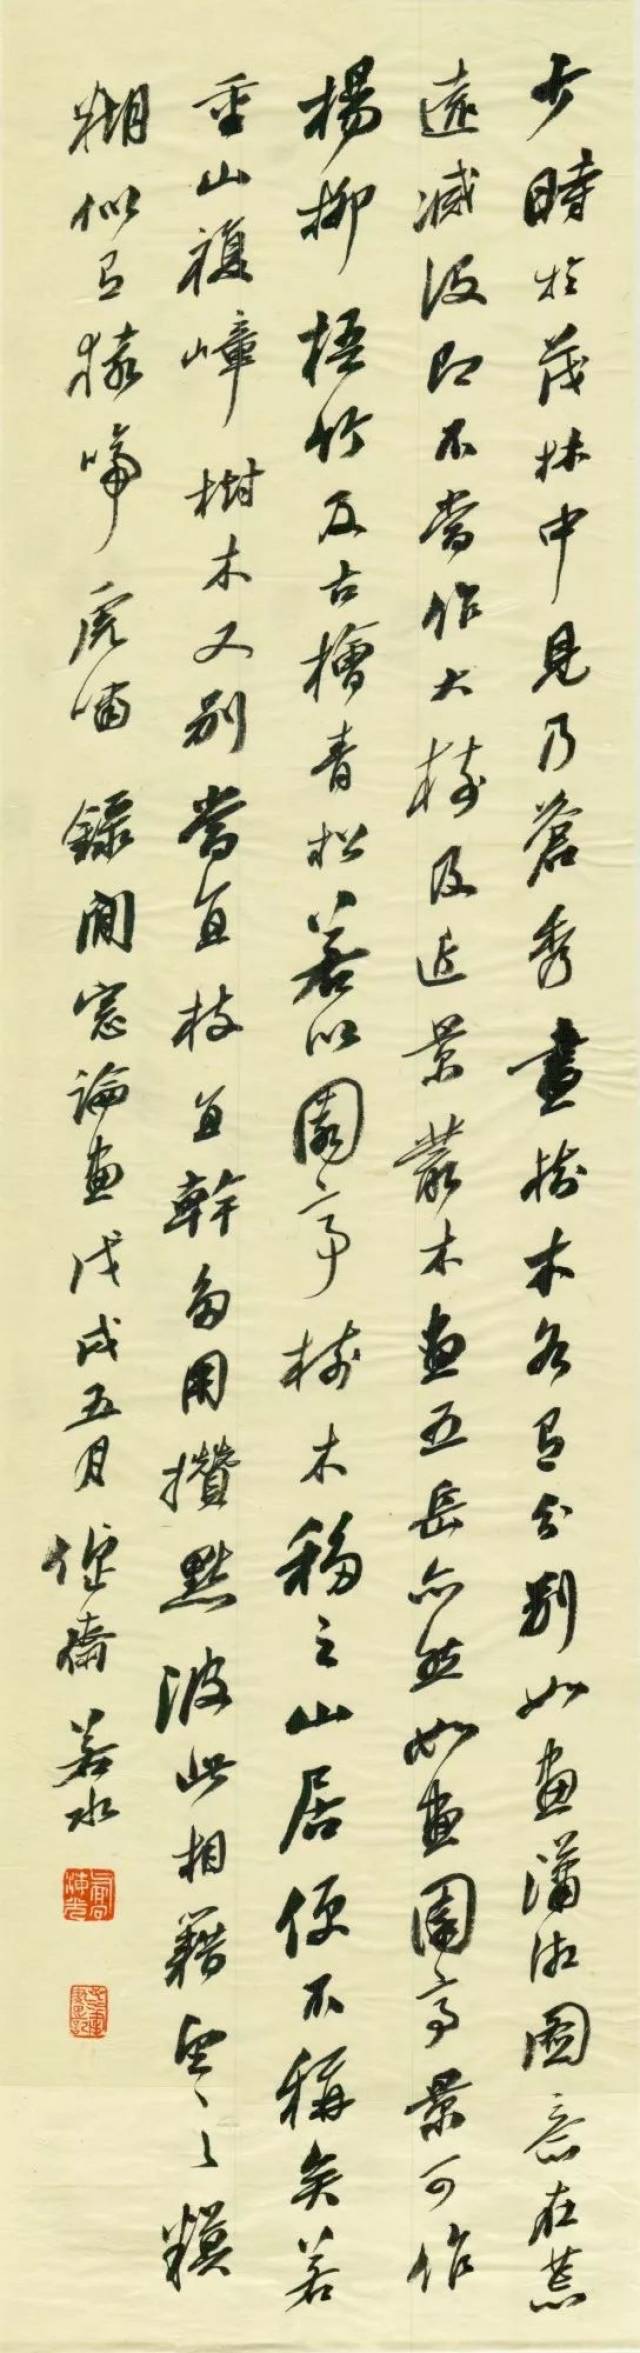 少時於茂林中見乃蒼秀畫樹木各有分別如畫瀟湘圖意在荒
遠滅沒即不當作大樹及近景叢木畫五岳亦然如畫園亭景可作
楊柳梧竹及古檜青松若以園亭樹木移之山居便不稱矣若
重山複嶂樹木又別當直枝直幹多用攢點彼此相藉望之模
糊似有猿啼虎嘯 錄閒窗論畫戊戌五月 若水